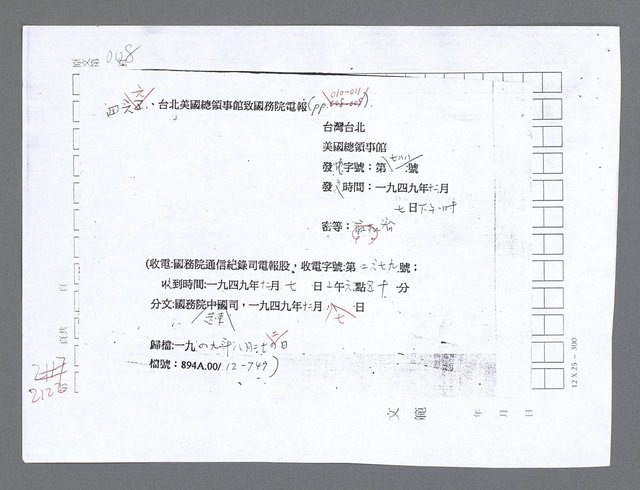 原文第008
四六、台北美國總領事館致國務院電報(pp. 010-011).
台灣台北
美國總領事館
發電字號：第七八八號
發電時間：一九四九年十二月
七日下午一時
密等：
(收電:國務院通信紀錄司電報股，收電字號:第二六七九號；
收到時間:一九四九年十二月七日上午六點五十分
分文:國務院中國司，一九四九年十二月八日
七
歸檔:一九四九年八月二十日
檔號：894A.00/12-749)
頁共 頁
2117
2126
12 X 25 — 300
文範 年 月 日